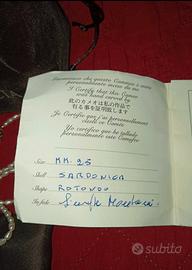 Garantisco che questo Cammeo è stato
personalmente inciso da me
I Certify that this Cameo
was hand carved by
此のカメオは私の作品で
有る事を証明致します
Je Certifie que j'ai personnellement
ciselé ce Camée
Yo certifico que he tallado
personalmente este Camafeo
Size MM. 25
Shell SARDONICA
Shape ROTONDO
In fede
Subito